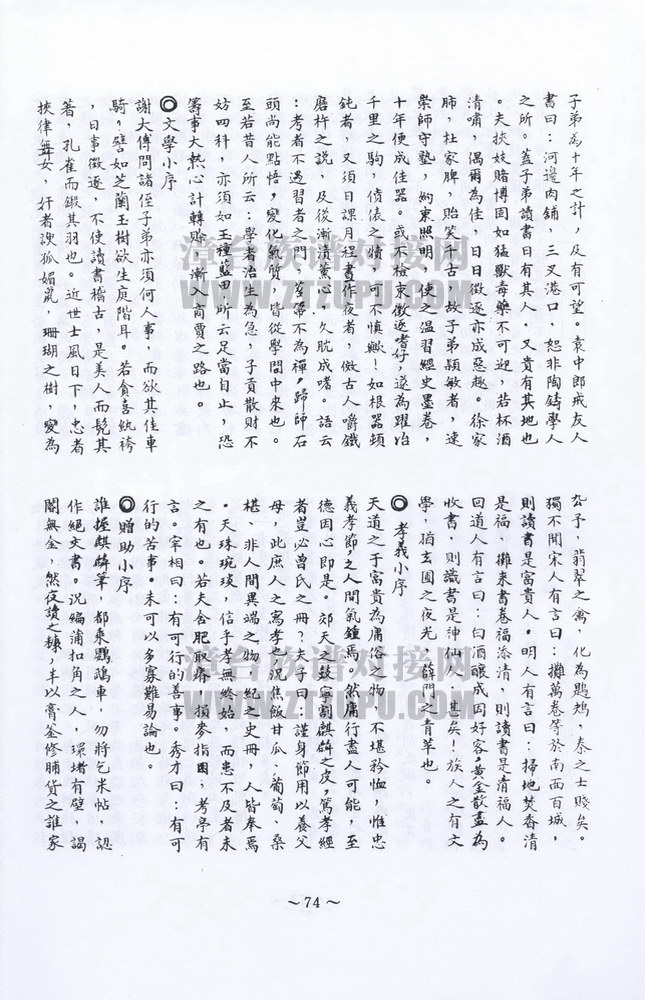 子弟為十年之計,及有可望。袁中郎戒友人
書曰:河邊肉鋪,三叉港口,恕非陶鋳學人
之所。蓋子弟讀書日有其人,又貴有其地也
。夫挾妓賭博固如猛獸毒藥不可迎,若杯酒
清嘯,偶爾為佳,日日徵逐亦成惡趣。徐家
肺,杜家脾,貽笑千古。故子弟穎敏者,速
崇師守塾,約束照明,使之溫習經史墨卷,
十年便成佳器。或不檢束徵逐嗜好,遂為躍冶
千里之駒,僨俵之犢,可不慎歟!如根器頓
鈍者,又須日課月程晝作夜者,倣古人嚼鐵
磨杵之說,及後漸漬薰心,久耽成嗜。語云
:考者不遇習者之門,苕箒不為禪,歸師石
頭尚能點悟,變化氣質,皆從學問中來也。
至若昔人所云:學者治生為急,子貢散財不
妨四科,亦須如玉種藍田所云足當自止,恐
籌事大熱心計轉賒,漸入商賈之路也。
◎文學小序
謝大傅問諸侄子弟亦須何人事,而欲其佳車
騎。譬如芝蘭玉樹欲生庭階耳。若貪喜紈袴
,日事徵逐,不使讀書稽古,是美人而髡其
著,孔雀而鎩其羽也。近世士風日下,忠者
挾律舞女,奸者諛狐媚鼠,珊瑚之樹,變為
公予,翡翠之禽,化為鷃鳩,秦之士賤矣。
獨不聞宋人有言曰:擁萬卷等於南面百城,
則讀書是富貴人。明人有言曰:掃地焚香清
是福,攤來書卷福添清,則讀書是清福人。
回道人有言曰:白酒釀成因好客,黃金散盡為
收書,則識書是神仙人。甚矣!族人之有文
學,猶玄圃之夜光,薛門之青萍也。
◎孝義小序
天道之于富貴為庸俗之物,不堪矜恤,惟忠
義孝節,之人間氣鍾焉。然庸行盡人可能,至
德因心即是。郊天之鼓寧劉麒麟之皮,篤孝經
者豈必曾氏之冊?夫子曰:謹身節用以養父
母,此庶人之寫孝也。況焦飯甘瓜、葡萄、桑
椹、非人間異端之物,紀之史冊,人皆奉焉
。天珠琬琰,信乎孝無終始,而患不及者未
之有也。若夫舍肥取瘠,損麥指囷,考亭有
言。宰相曰:有可行的善事。秀才曰:有可
行的苦事。未可以多寡難易論也。
◎贈助小序
誰握麒麟筆,都乘鸚鵡車,勿將乞米帖,認
作絕文書。況編蒲扣角之人,環堵有壁,謁
闍無金,然夜讀之糠,半以膏釜修脯貸之誰家
漳台族谱对接网
WWW.ZTZUPU.COM
漳台族谱对接网
WWW.ZTZUPU.COM
~74~